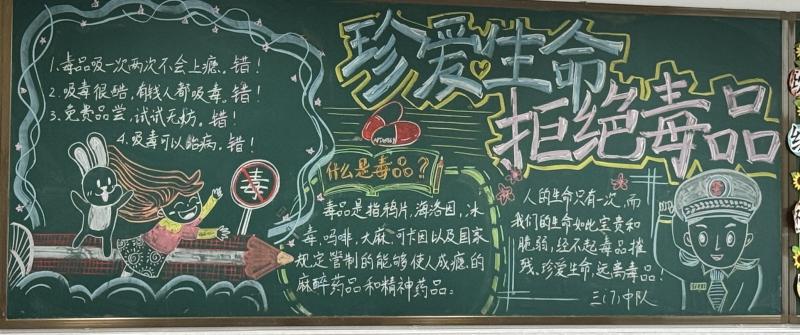 珍爱生命
拒绝毒品
1.毒品吸一次两次不会上瘾。错！
2.吸毒很酷,有钱人都吸毒。错！
3.免费品尝,试试无妨。错！
4.吸毒可以治病。错！
毒
什么是毒品？
毒品是指鸦片,海洛因,冰
毒,吗啡,大麻,可卡因以及国家
规定管制的能够使人成瘾的
麻醉药品和精神药品。
人的生命只有一次,而
我们的生命如此宝贵和
脆弱,经不起毒品摧
残。珍爱生命,远离毒品！
三(7)中队